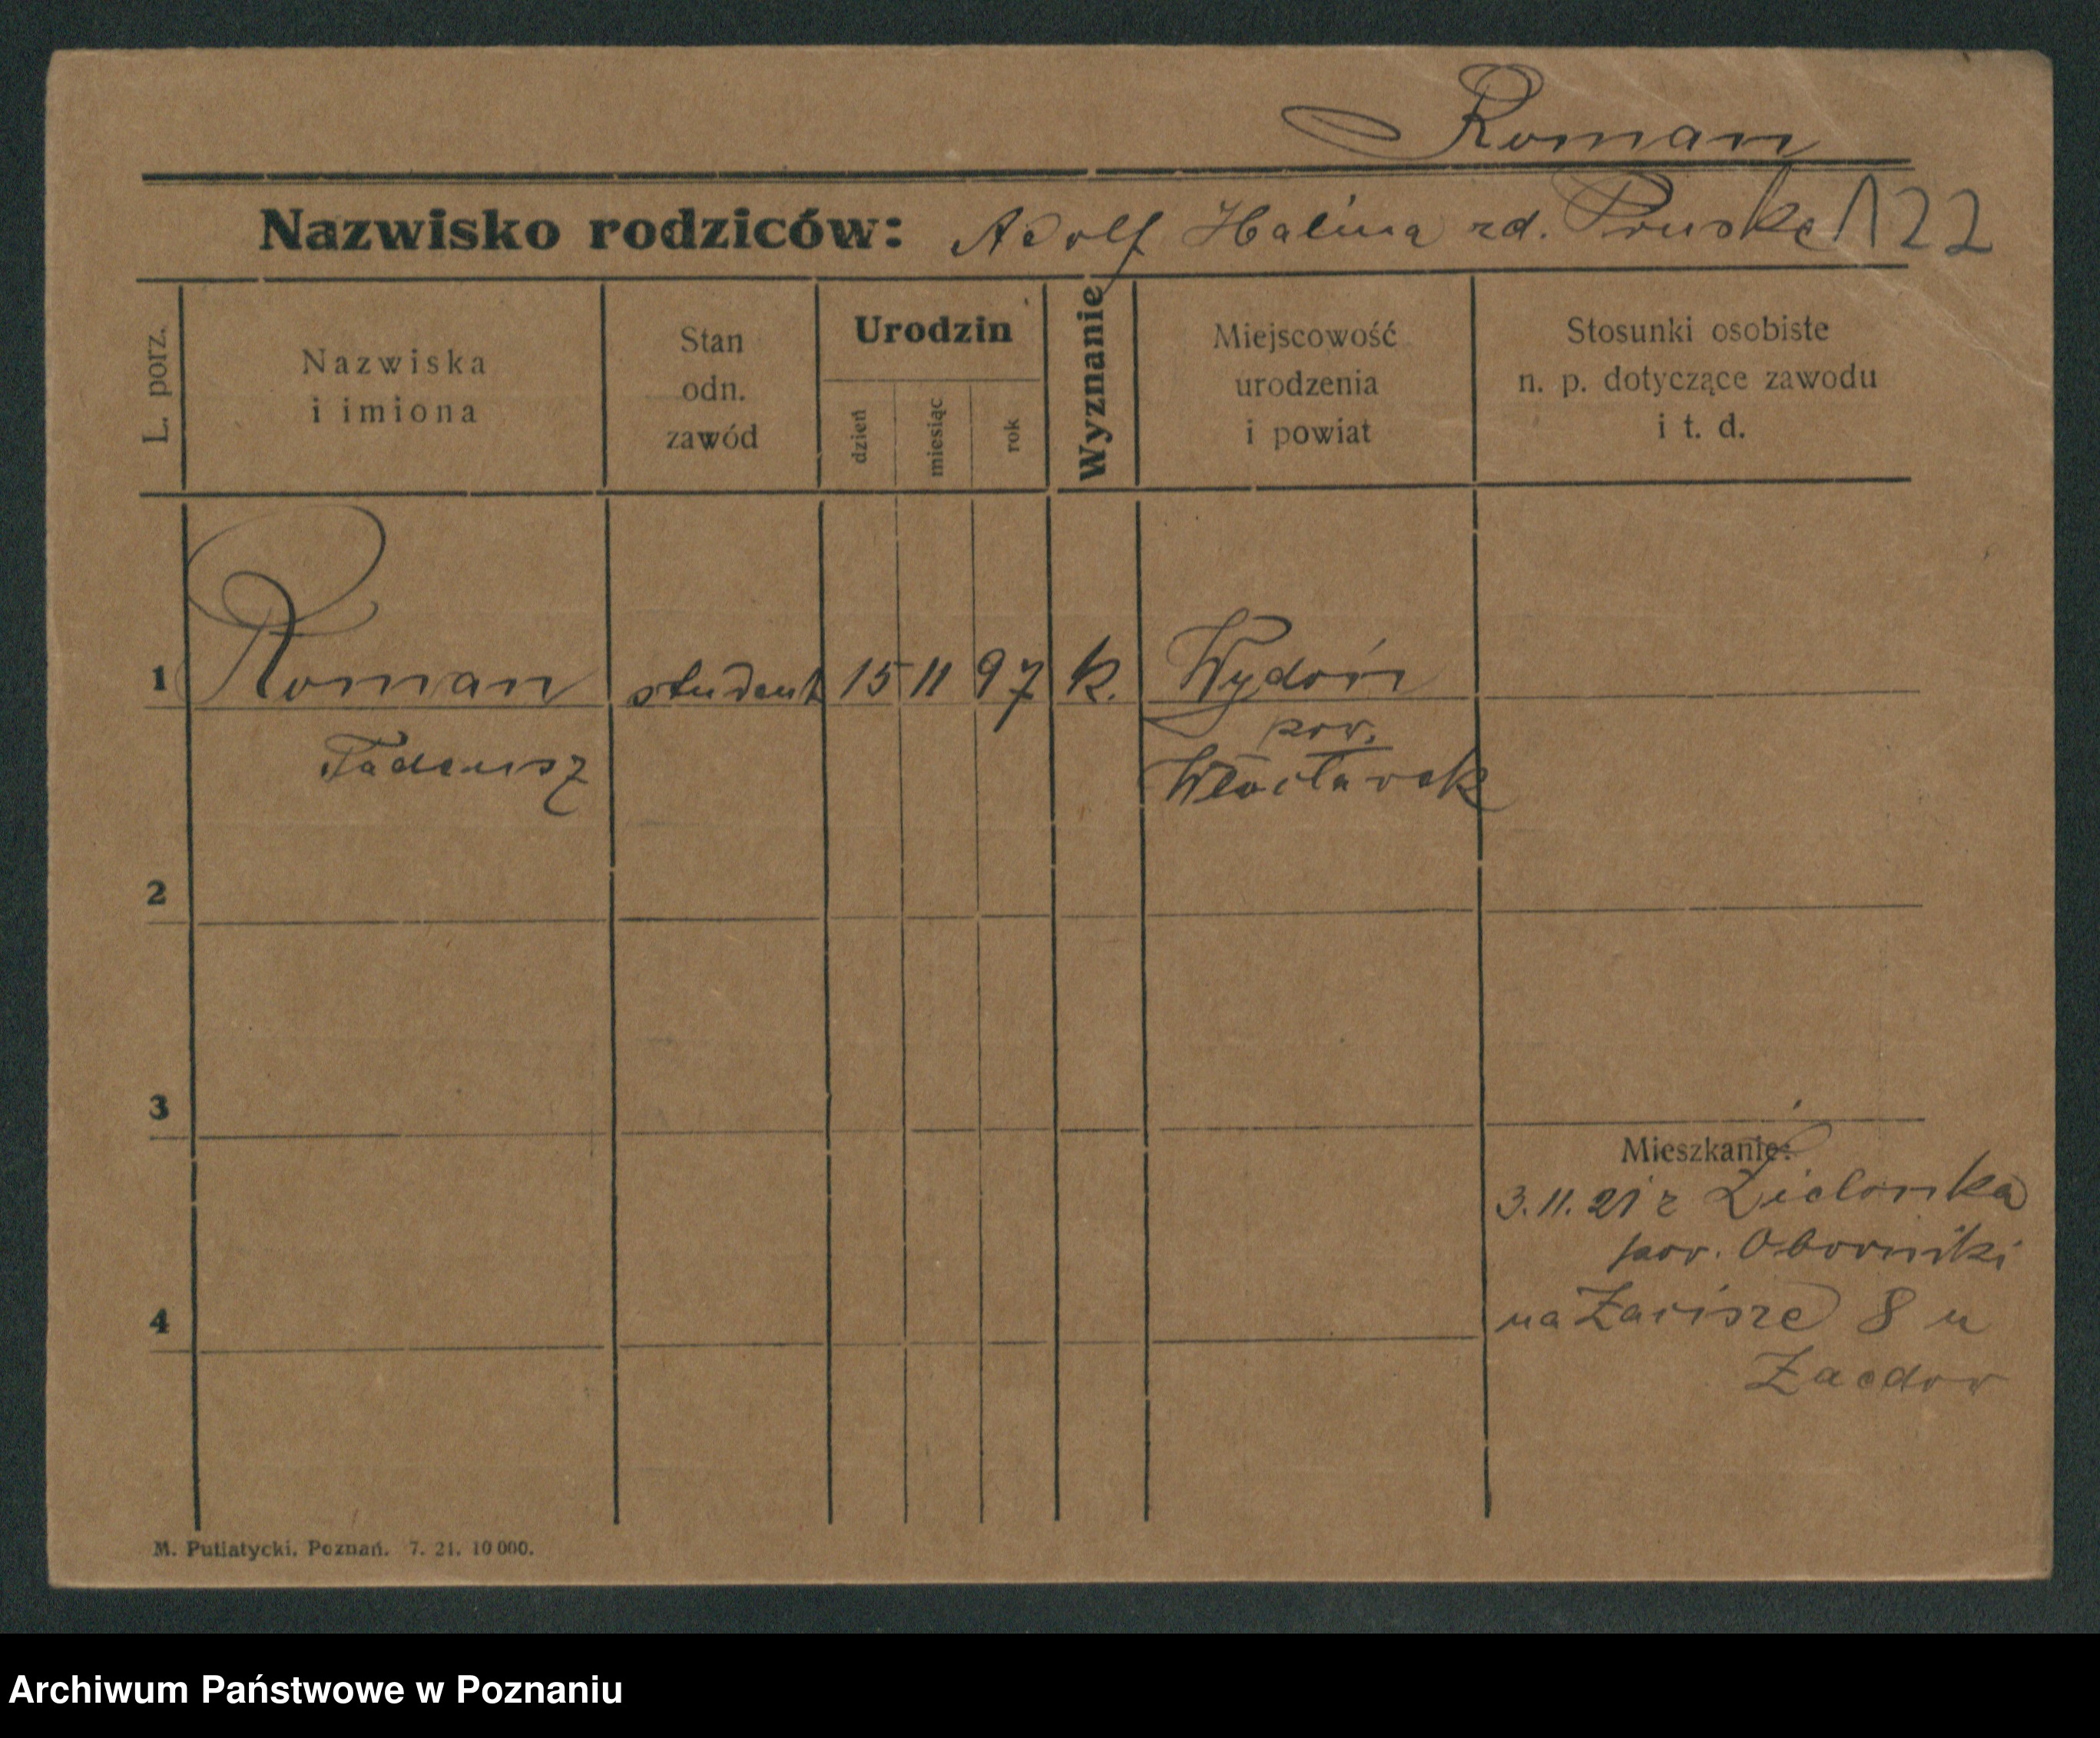 Roman
Nazwisko rodziców: Adolf Halina zd. Pruska 122
L. porz.
Nazwiska
i imiona
Stan
odn.
zawód
Urodzin
dzień
miesiąc
rok
Wyznanie
Miejscowość
urodzenia
i powiat
Stosunki osobiste
n. p. dotyczące zawodu
i t. d.
1 Roman student 15 11 97 k. Wydoń
pow.
Tadeusz Włocławek
2
3
Mieszkanie:
3.11.21 z Zielonka
pow. Oborniki
4 na Zacisze 8 u
M. Putiatycki. Poznań. 7. 21. 10 000.
Archiwum Państwowe w Poznaniu